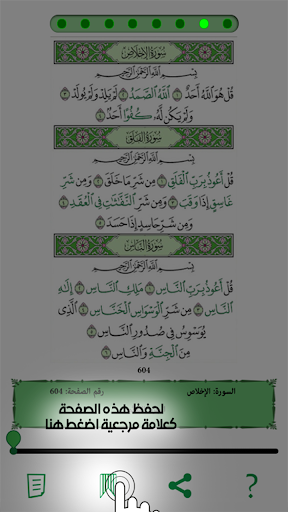 سُورَةُ الإِخْلَاصِ
بِسْمِ اللَّهِ الرَّحْمَٰنِ الرَّحِيمِ
قُلْ هُوَ اللَّهُ أَحَدٌ ١ اللَّهُ الصَّمَدُ ٢ لَمْ يَلِدْ وَلَمْ يُولَدْ ٣
وَلَمْ يَكُن لَّهُ كُفُوًا أَحَدٌ ٤
سُورَةُ الفَلَقِ
بِسْمِ اللَّهِ الرَّحْمَٰنِ الرَّحِيمِ
قُلْ أَعُوذُ بِرَبِّ الْفَلَقِ ١ مِن شَرِّ مَا خَلَقَ ٢ وَمِن شَرِّ
غَاسِقٍ إِذَا وَقَبَ ٣ وَمِن شَرِّ النَّفَّاثَاتِ فِي الْعُقَدِ ٤
وَمِن شَرِّ حَاسِدٍ إِذَا حَسَدَ ٥
سُورَةُ النَّاسِ
بِسْمِ اللَّهِ الرَّحْمَٰنِ الرَّحِيمِ
قُلْ أَعُوذُ بِرَبِّ النَّاسِ ١ مَلِكِ النَّاسِ ٢ إِلَٰهِ
النَّاسِ ٣ مِن شَرِّ الْوَسْوَاسِ الْخَنَّاسِ ٤ الَّذِي
يُوَسْوِسُ فِي صُدُورِ النَّاسِ ٥
مِنَ الْجِنَّةِ وَالنَّاسِ ٦
604
السورة: الإخلاص رقم الصفحة: 604
لحفظ هذه الصفحة
كعلامة مرجعية اضغط هنا
?